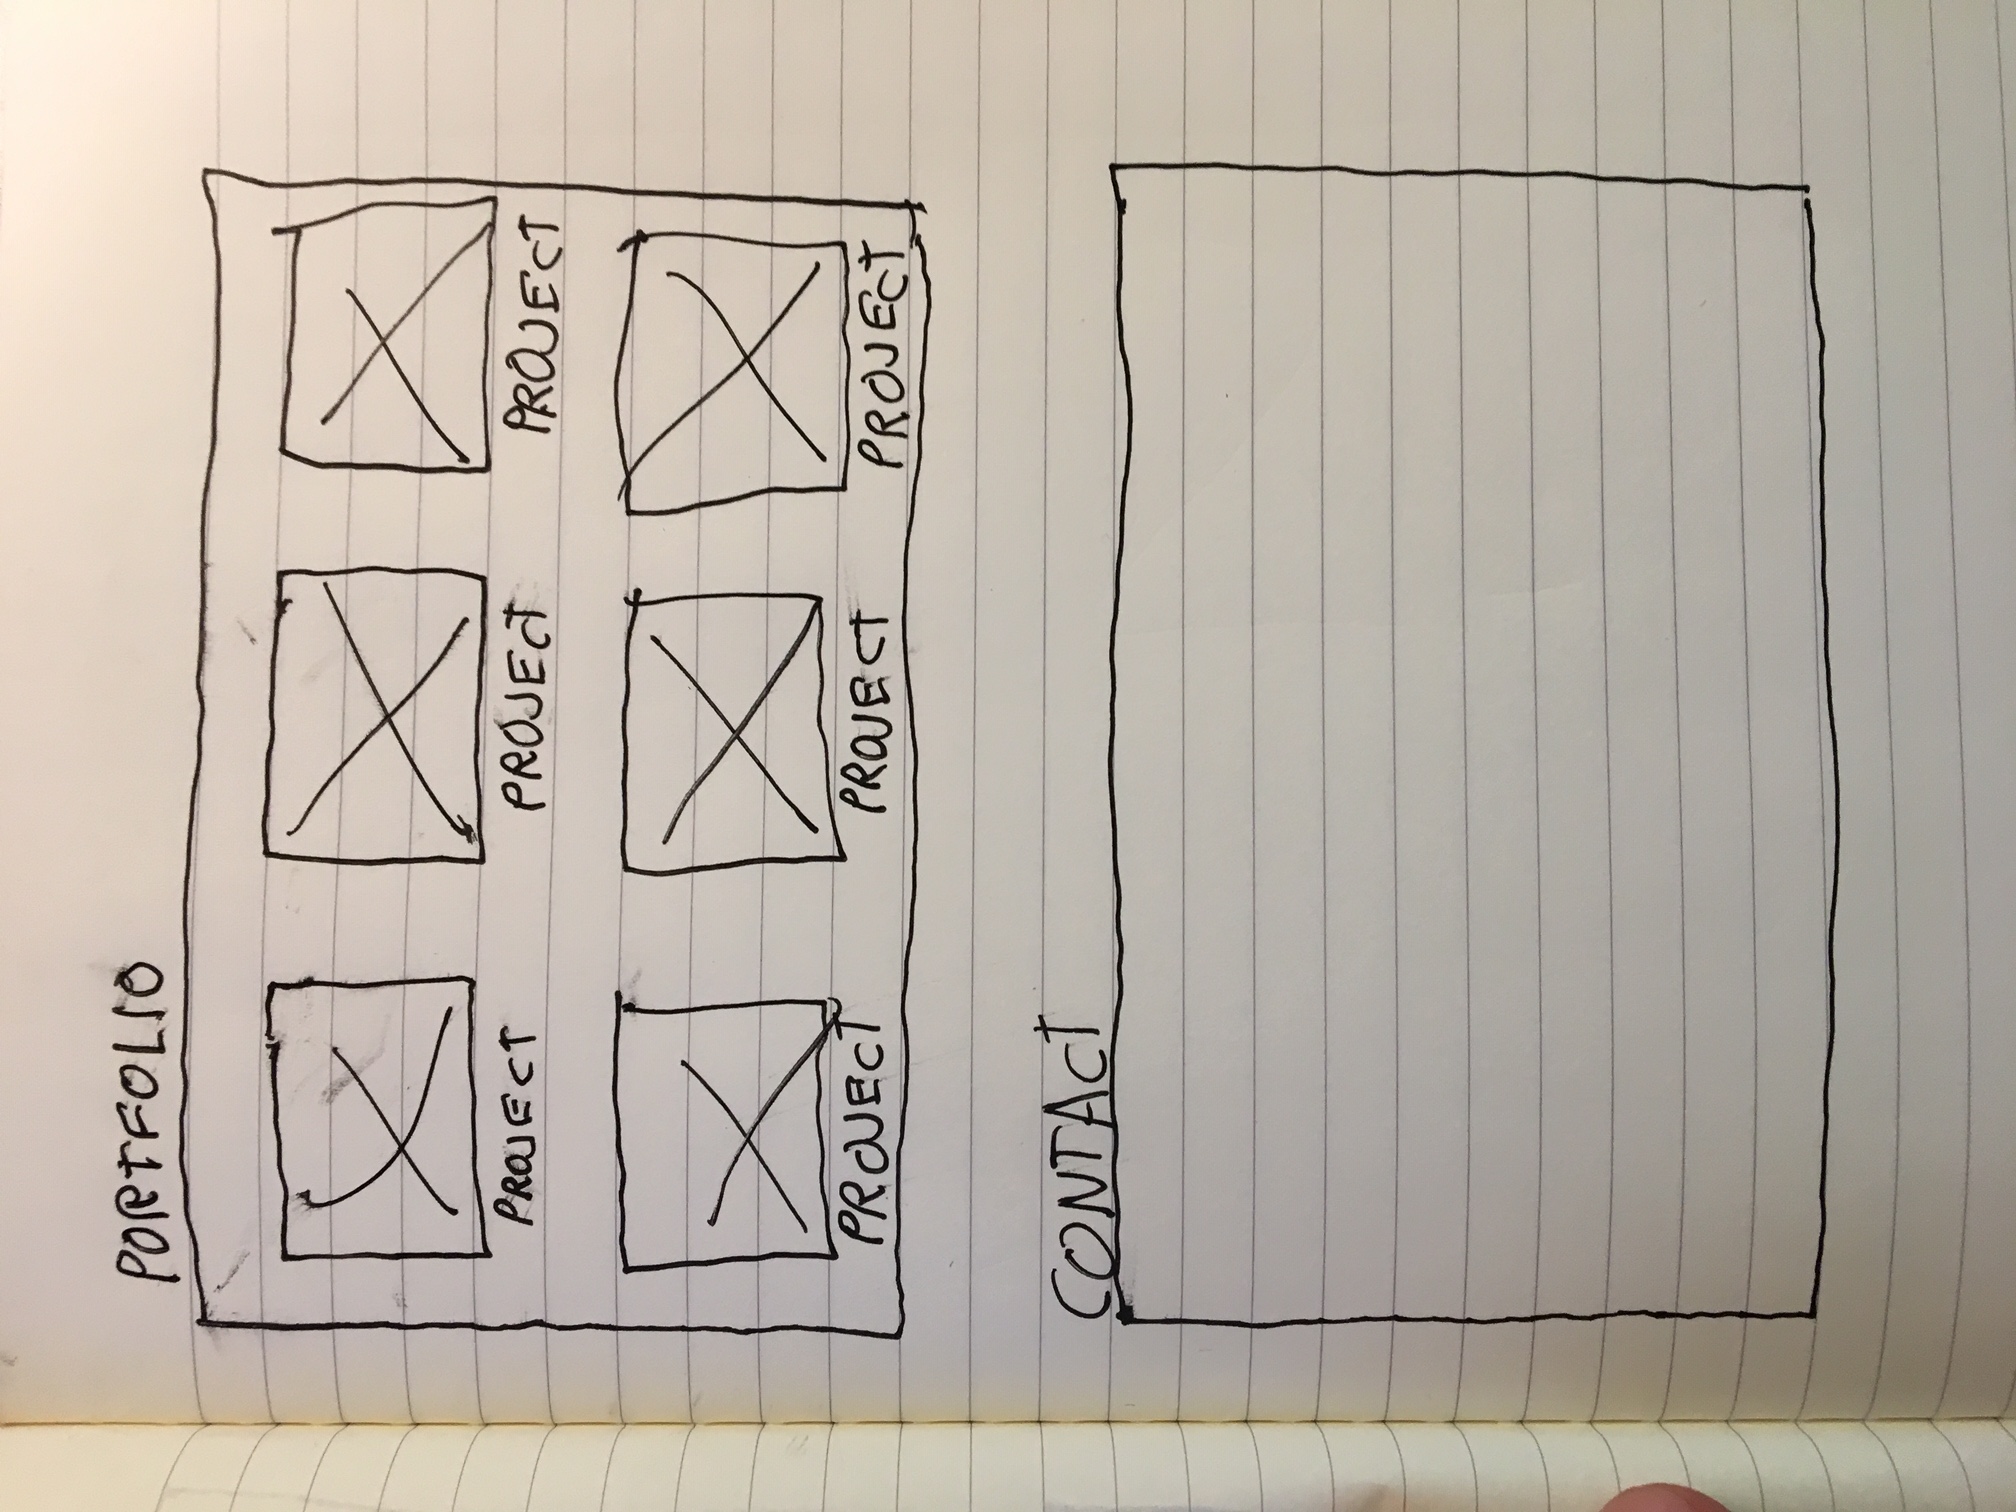 PORTFOLIO
PROJECT PROJECT PROJECT
PROJECT PROJECT PROJECT
CONTACT